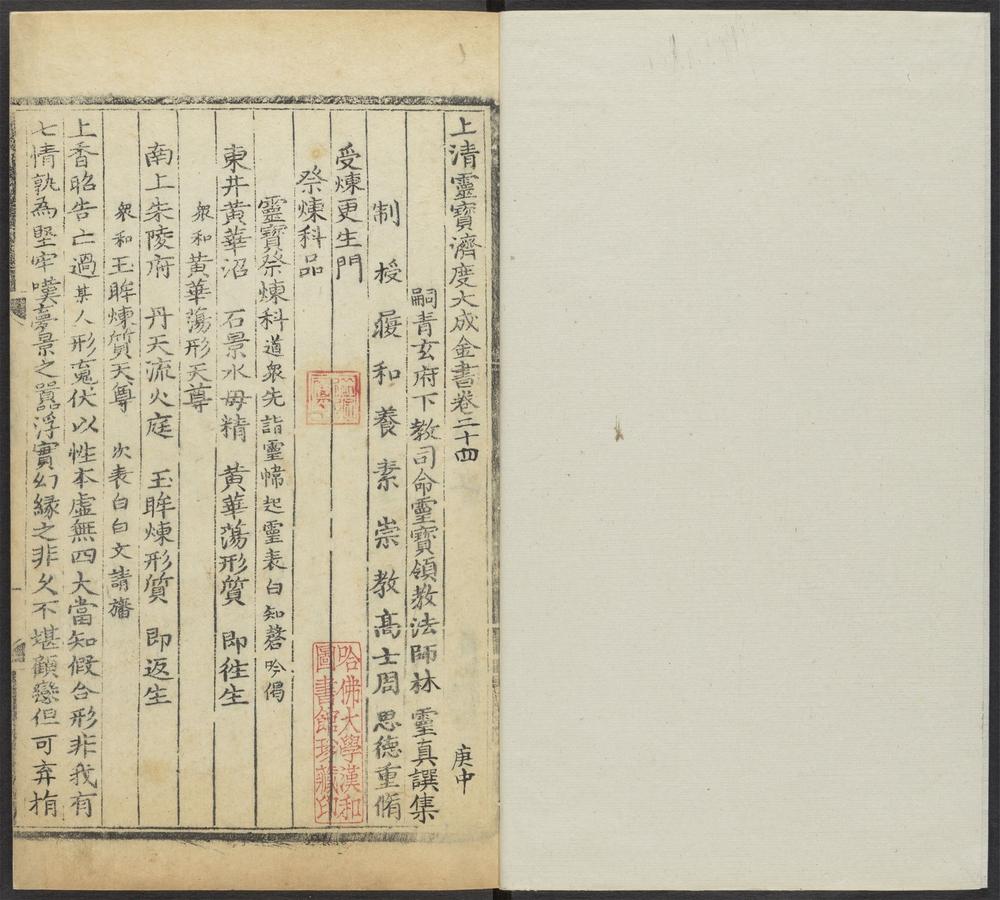 上清靈寶濟度大成金書卷二十四 庚中
嗣青玄府下教司命靈寶領教法師林 靈真譔集
制授履和養素崇教高士周 思德重脩
受煉更生門
祭煉科品
靈寶祭煉科 道衆先詣靈幃起靈表白知磬吟偈
東井黃華沼 石景水母精 黃華蕩形質 即徃生
衆和黃華蕩形天尊
南上朱陵府 丹天流火庭 玉眸煉形質 即返生
衆和玉眸煉質天尊 次表白白文請旛
上香昭告亡過某人形䰟伏以性本虛無四大當知假合形非我有
七情孰為堅牢嘆夢景之囂浮實幻緣之非久不堪顧戀但可弃捐
哈佛大學漢和
圖書館珍藏印